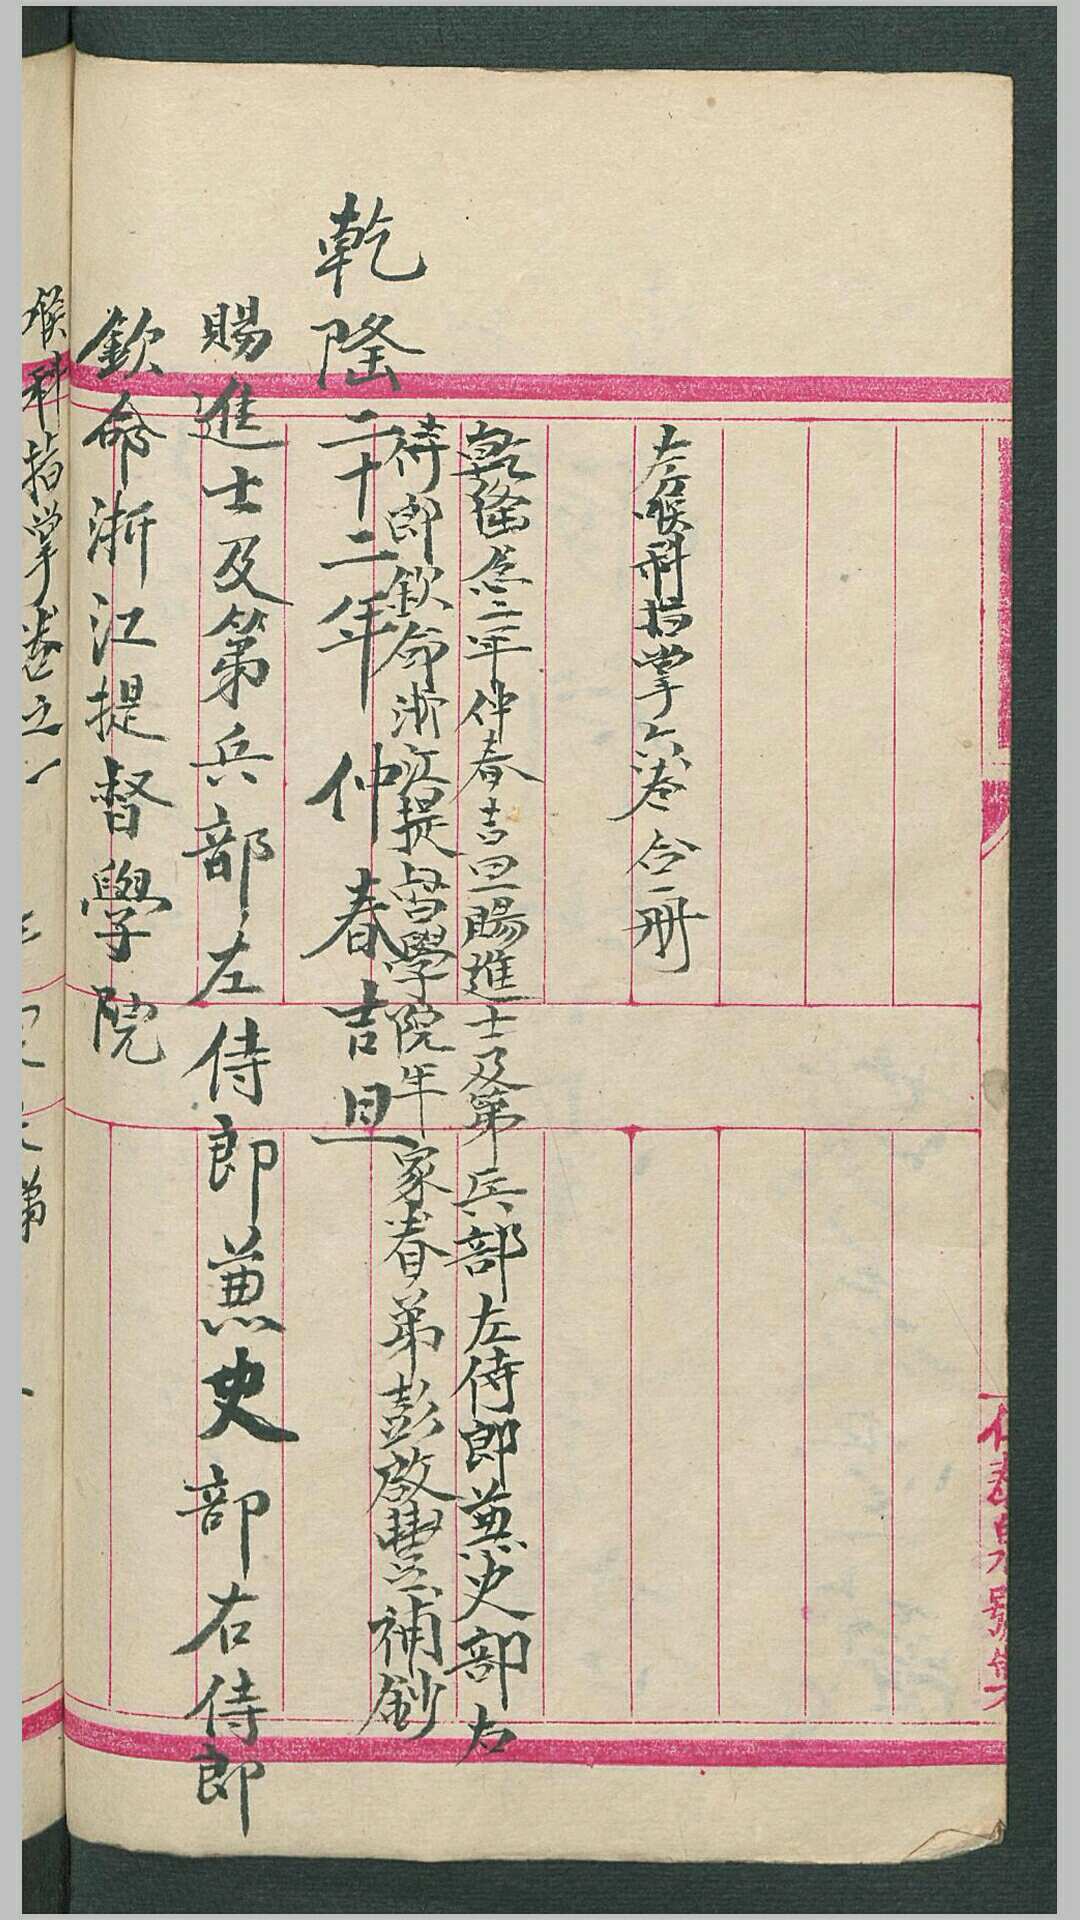 喉科指掌六卷合一冊
乾隆念二年仲春吉旦賜進士及第兵部左侍郎兼史部右
侍郎欽命浙江提督學院年家眷弟彭啟豐補鈔
乾隆二十二年仲春吉旦
賜進士及第兵部左侍郎兼史部右侍郎
欽命浙江提督學院
喉科指掌卷之一